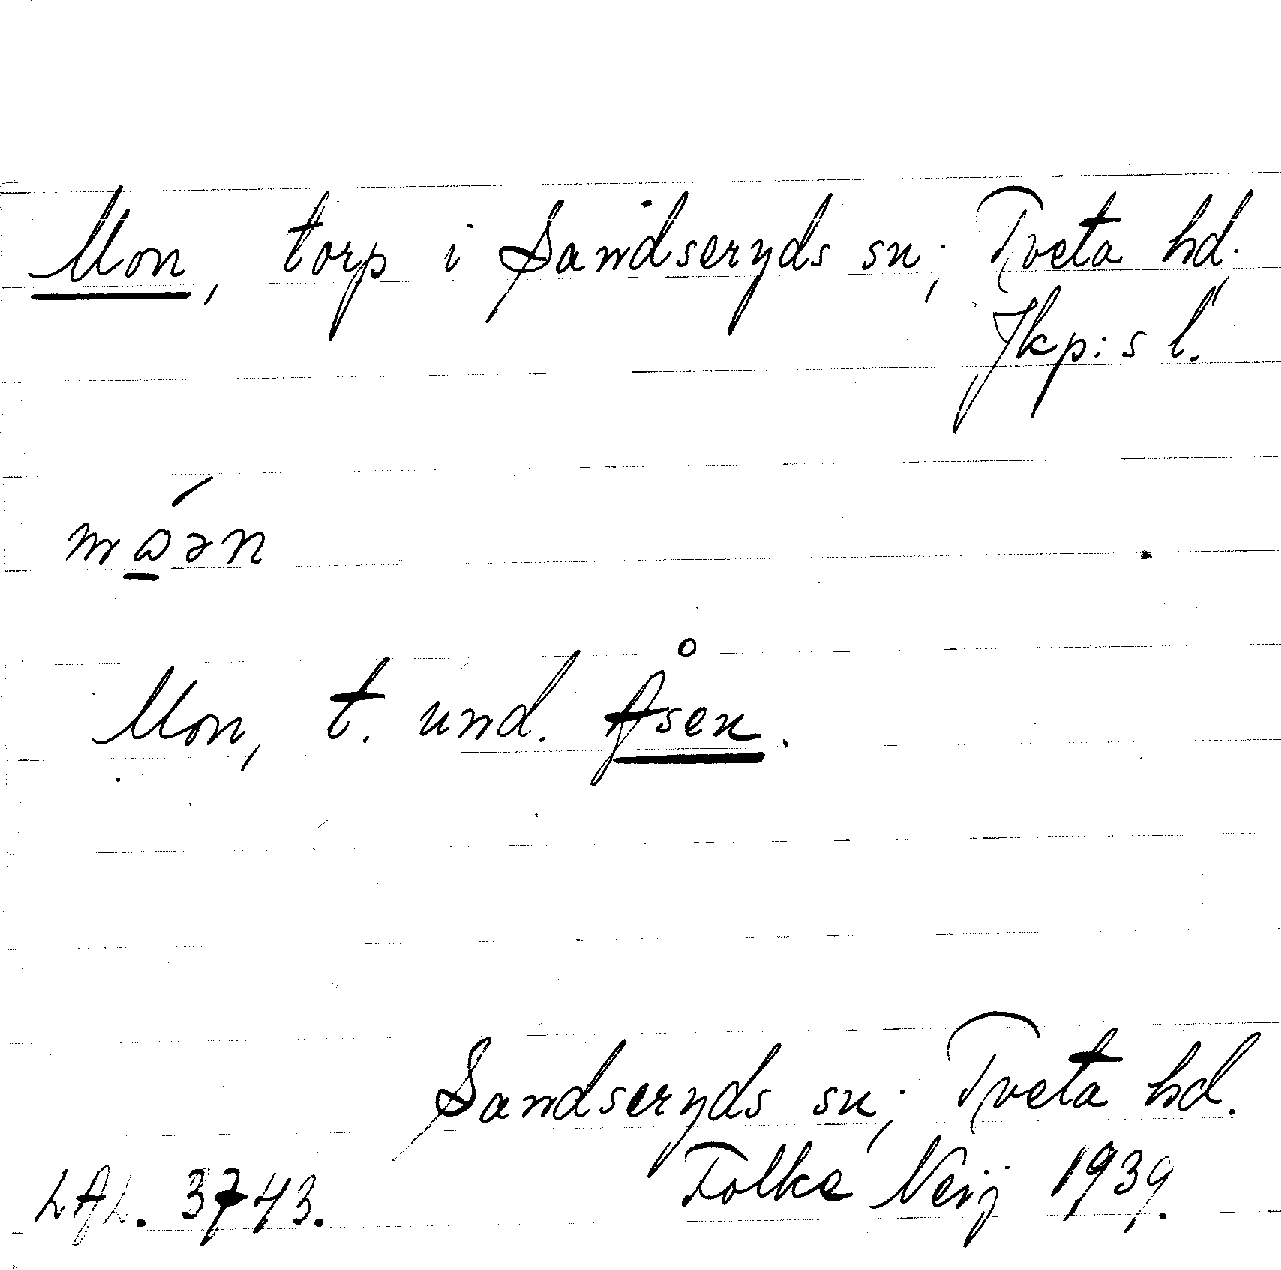 Mon, torp i Sandseryds sn; Tveta hd.
Jkp:s l.
Mon, t. und. Åsen.
Sandseryds sn; Tveta hd.
LAL. 3743.
Folke Neij 1939.